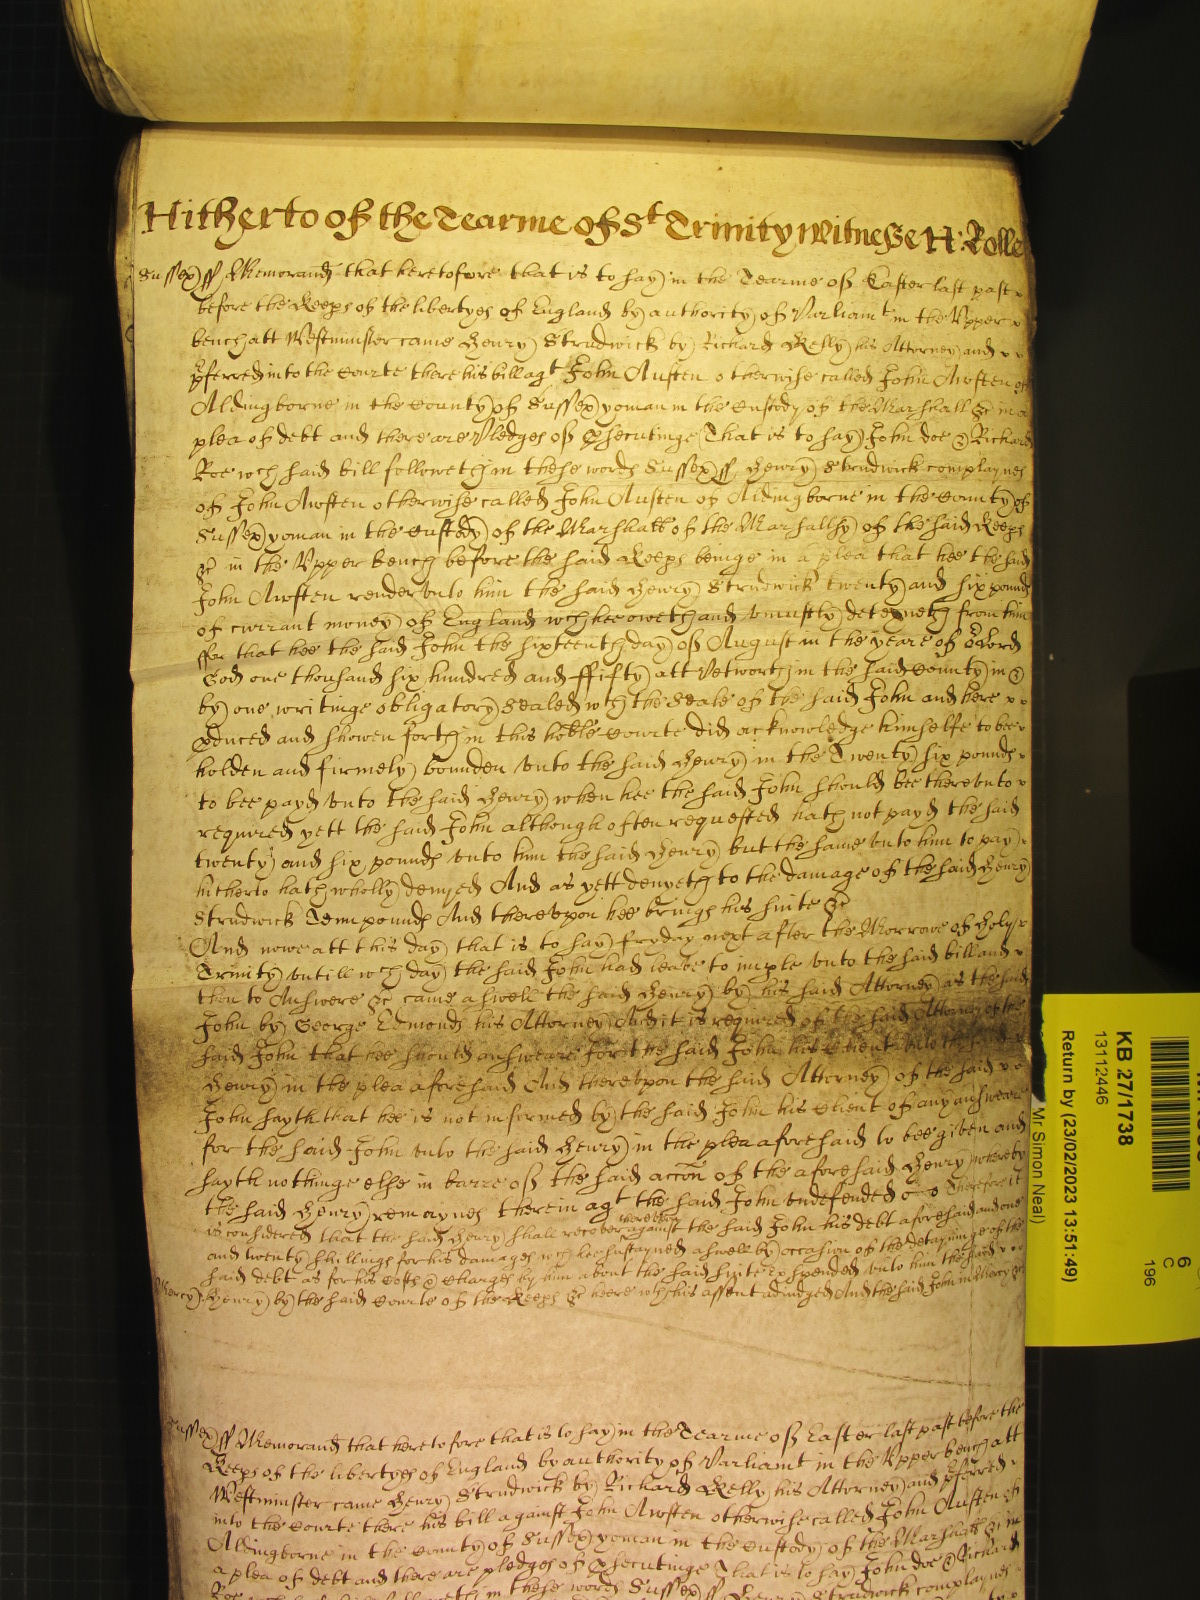 Hitherto of the Tearme of St Trinity Witnesse H: Rolle
Sussex ss Memorand that heretofore that is to say in the Tearme of Easter last past
before the Keeps of the libertyes of England by authority of Parliamt in the Upper
bench att Westminster came Henry Strudwick by Richard Kelly his Attorney and
pferred into the Courte there his bill agt John Austen otherwise called John Awsten of
Aldingborne in the County of Sussex yoman in the Custody of the Marshall &c in a
plea of debt and there are Pledges of psecutinge That is to say John doe & Richard
Roe wch said bill followeth in these words Sussex ss Henry Strudwick complaynes
of John Awsten otherwise called John Austen of Aldingborne in the County of
Sussex yoman in the Custody of the Marshall of the Marshallsy of the said Keeps
&c in the Upper bench before the said Keeps beinge in a plea that hee the said
John Awsten render unto him the said Henry Strudwick twenty and six pounds
of currant money of England wch hee oweth and uniustly deteyneth from him
ffor that hee the said John the sixteenth day of August in the yeare of or Lord
God one thousand six hundred and ffifty att Petworth in the said County in &
by one writinge obligatory Sealed wth the Seale of the said John and here
pduced and showen forth in this hoble Courte did acknowledge himselfe to bee
holden and firmely bounden unto the said Henry in the Twenty six pounds
to bee payd unto the said Henry when hee the said John should bee thereunto
required yett the said John although often requested hath not payd the said
twenty and six pounds unto him the said Henry but the same unto him to pay
hitherto hath wholly denyed And as yett denyeth to the damage of the said Henry
Strudwick Tenn pounds And thereupon hee brings his suite &c
And nowe att this day that is to say fryday next after the Morrowe of Holy
Trinity untill wch day the said John had leave to imple unto the said bill and
then to Answere &c came aswell the said Henry by his said Attorney as the said
John by George Edmonds his Attorney And it is required of the said Attorney of the
said John that hee should answeare for the said John his Client unto the said
Henry in the plea aforesaid And thereupon the said Attorney of the said
John sayth that hee is not informed by the said John his Client of any answeare
for the said John unto the said Henry in the plea aforesaid to bee given and
sayth nothinge else in barre of the said accon of the aforesaid Henry whereby
the said Henry remaynes therein agt the said John undefended Therefore it
is considered that the said Henry shall recover against the said John his debt aforesaid and one
and twenty shillings for his damages wch hee hath sustayned aswell by occasion of the detayninge of the
said debt as for his Costs & Charges by him about the said suite expended unto him the said
Mercy Henry by the said Courte of the Keeps &c heere wth his assent adiudged And the said John in Mercy &c
Sussex ss Memorand that heretofore that is to say in the Tearme of Easter last past before the
Keeps of the libertyes of England by authority of Parliamt in the Upper bench att
Westminster came Henry Strudwick by Richard Kelly his Attorney and pferred
into the Courte there his bill against John Awsten otherwise called John Austen of
Aldingborne in the County of Sussex yoman in the Custody of the Marshall &c in
a plea of debt and there are pledges of psecutinge That is to say John doe & Richard
Roe in these words Sussex ss Henry Strudwick complaynes
KB 27/1738
13112446
Return by (23/02/2023 13:51:49)
Mr Simon Neal)
6
C
196